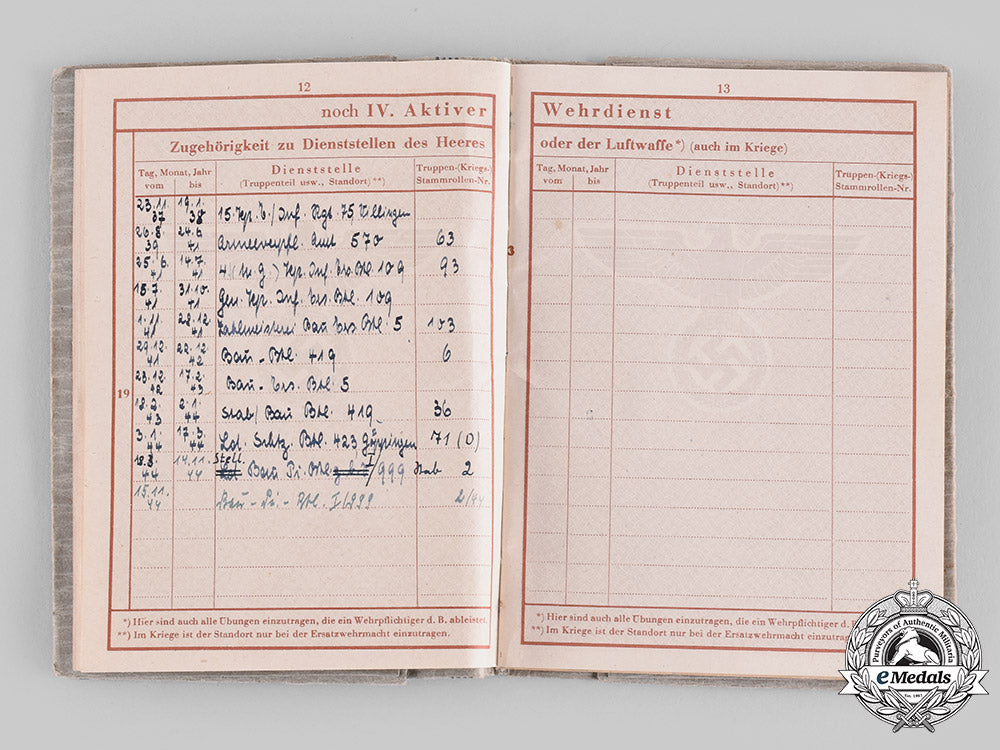 12
noch IV. Aktiver
Zugehörigkeit zu Dienststellen des Heeres
Tag, Monat, Jahr
vom bis
Dienststelle
(Truppenteil usw., Standort)**)
Truppen-(Kriegs-)
Stammrollen-Nr.
23.11. 37 19.1. 38 15. Inf. Rgt. 75, Villingen
26.8. 39 24.6. 41 Armeeverpfl. Amt 570 63
25.6. 41 14.7. 41 4.(M.G.) Kp. Inf. Ers. Btl. 109 93
15.7. 41 31.10. 41 Gen. Kp. Inf. Ers. Btl. 109
1.11. 41 28.12. 41 Zahlmeisterei Bau Ers. Btl. 5 103
29.12. 41 22.12. 42 Bau-Btl. 419 6
23.12. 42 17.2. 43 Bau-Ers. Btl. 5
18.2. 43 2.1. 44 Stab/Bau Btl. 419 36
3.1. 44 17.3. 44 Ldt. Schtz. Btl. 423 71 (O)
18.3. 44 14.11. 44 Stell. Bau Pi. Btl. I/999 Stab 2
15.11. 44 Bau-Pi.-Btl. I/999 2/44
19
*) Hier sind auch alle Übungen einzutragen, die ein Wehrpflichtiger d. B. ableistet.
**) Im Kriege ist der Standort nur bei der Ersatzwehrmacht einzutragen.
13
Wehrdienst
oder der Luftwaffe*) (auch im Kriege)
Tag, Monat, Jahr
vom bis
Dienststelle
(Truppenteil usw., Standort)**)
Truppen-(Kriegs-)
Stammrollen-Nr.
3
*) Hier sind auch alle Übungen einzutragen, die ein Wehrpflichtiger d. B.
**) Im Kriege ist der Standort nur bei der Ersatzwehrmacht einzutragen
Purveyors of Authentic Militaria
eMedals